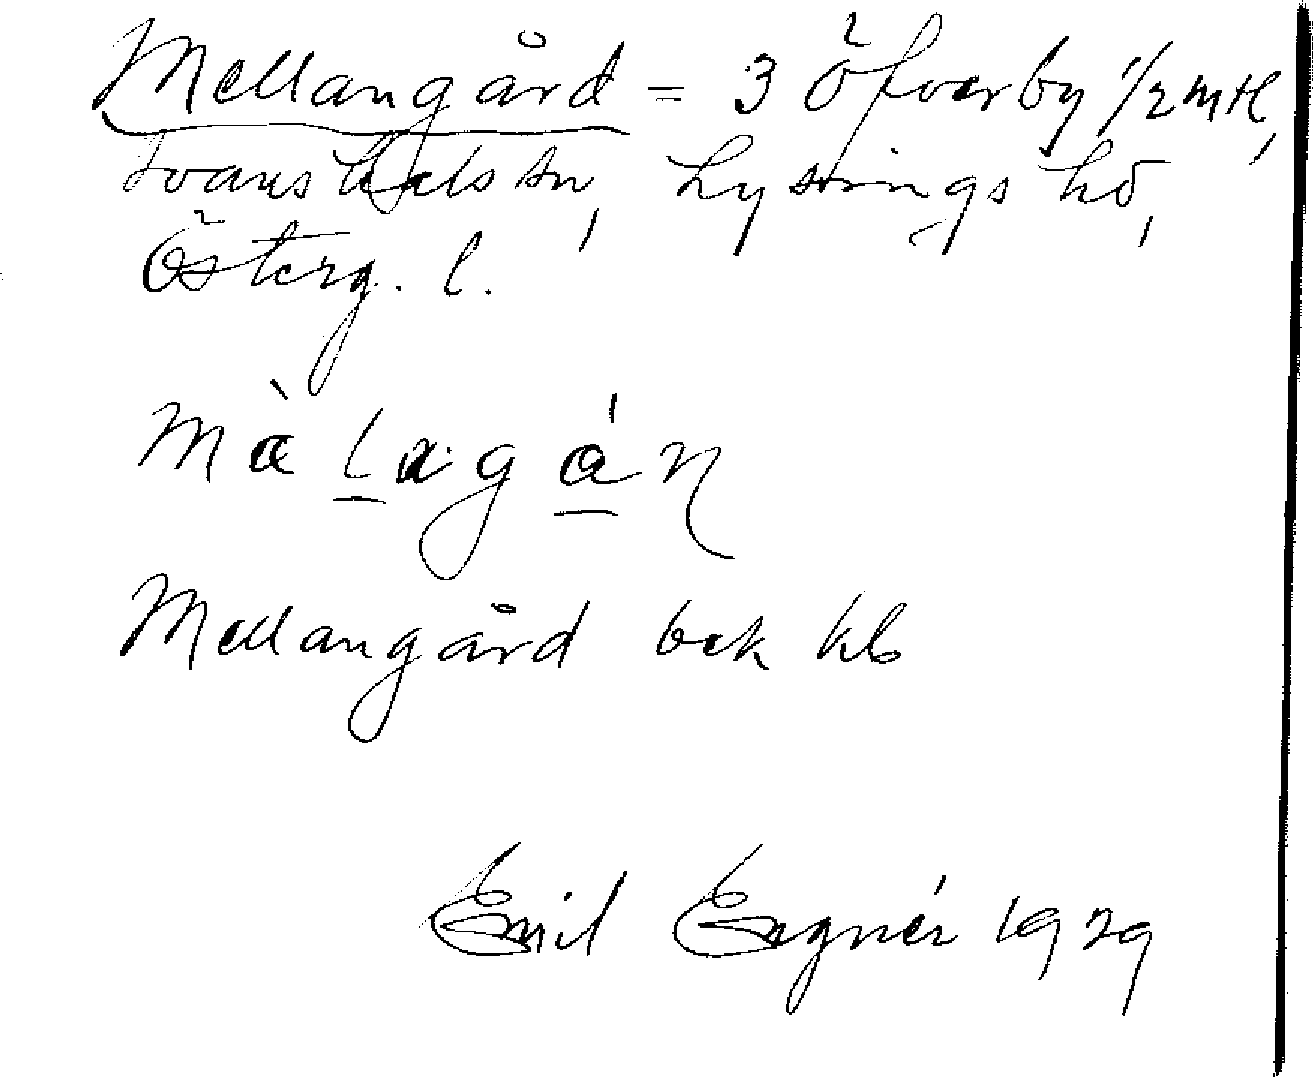 Mellangård = 3 Öfverby 1/2 mtl,
Svanshals sn, Lysings hd,
Österg. l.
Màlagán
Mellangård bek kb
Emil Engnér 1929